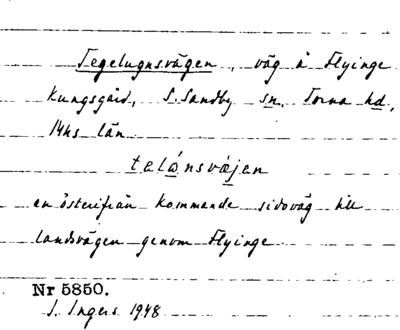 Tegelugnsvägen, väg å Flyinge
Kungsgård, S. Sandby sn, Torna hd,
Mhs län
telónsvæjen
en österifrån kommande sidoväg till
landsvägen genom Flyinge
Nr 5850.
I. Ingers 1948